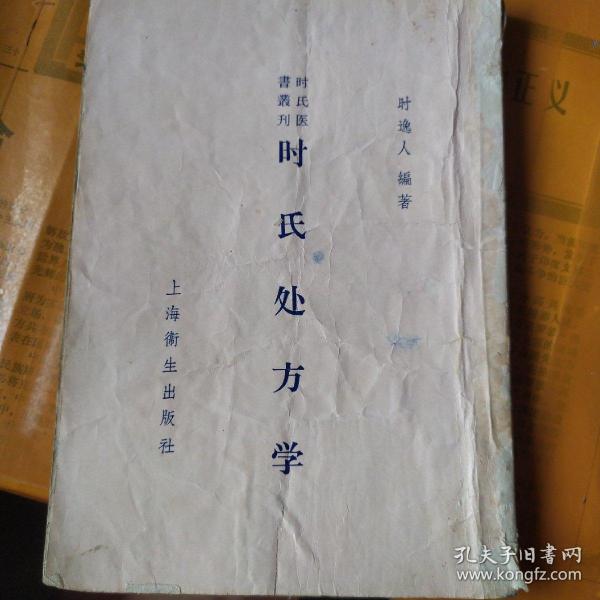 时逸人 编著
时氏医
書叢刊
时氏处方学
上海衞生出版社
正义
孔夫子旧书网
www.kongfz.com